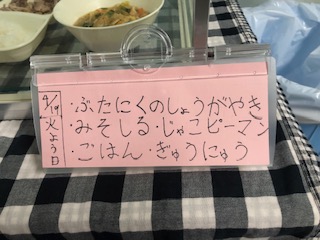 9/19火よう日
・ぶたにくのしょうがやき
・みそしる・じゃこピーマン
・ごはん・ぎゅうにゅう